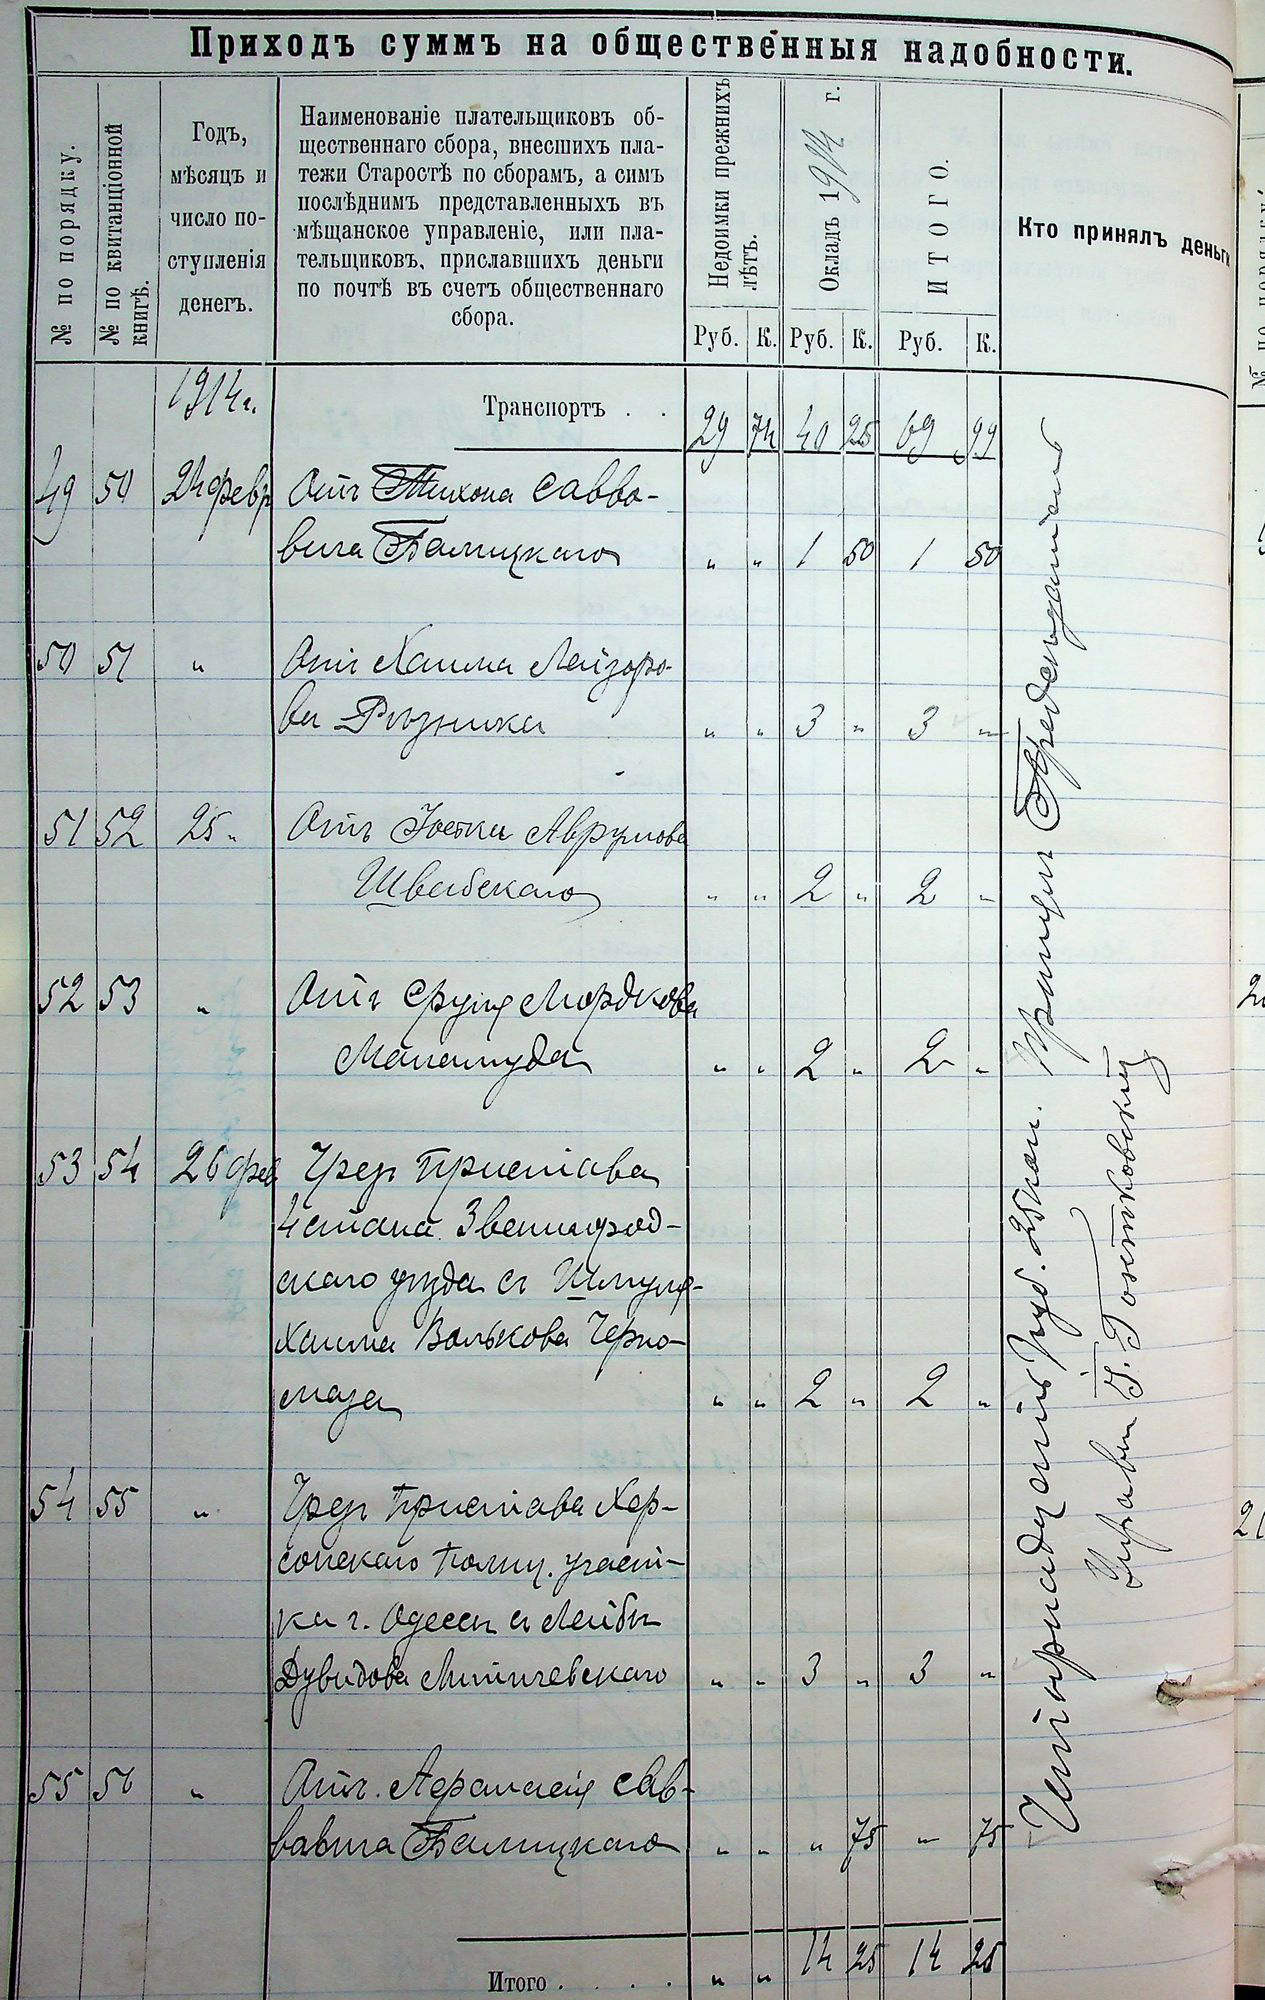 Приходъ суммъ на общественныя надобности.
№ по порядку.
№ по квитанціонной книгѣ.
Годъ,
мѣсяцъ и
число по-
ступленія
денегъ.
Наименованіе плательщиковъ об-
щественнаго сбора, внесшихъ пла-
тежи Старостѣ по сборамъ, а симъ
послѣднимъ представленныхъ въ
мѣщанское управленіе, или пла-
тельщиковъ, приславшихъ деньги
по почтѣ въ счетъ общественнаго
сбора.
Недоимки прежнихъ лѣтъ.
Окладъ 1914 г.
ИТОГО.
Кто принялъ деньги
Руб. К. Руб. К. Руб. К.
1914 г. Транспортъ . . 29 74 40 25 69 99
49 50 24 февр Отъ Тихона Савво-
вича Балицкаго „ „ 1 50 1 50
50 51 „ Отъ Хаима Лейзоро-
ва Рѣзника „ „ 3 „ 3 „
51 52 25 „ Отъ Іоська Аврумова
Швабскаго „ „ 2 „ 2 „
52 53 „ Отъ Сруля Мордкова
„ „ 2 „ 2 „
53 54 26 фев Чрез Пристава
4 стана Звенигород-
скаго уезда съ Шмуля-
Хаима Волькова Черно-
маза „ „ 2 „ 2 „
54 55 „ Чрез Пристава Хер-
сонскаго Полиц. участ-
ка г. Одессы съ Лейбы
Дувидова Литичевскаго „ „ 3 „ 3 „
55 56 „ Отъ Афанасія Сав-
вовича Балицкаго „ „ „ 75 „ 75
Четырнадцать руб. 25 коп. Принялъ Председатель
Управы Г. Гонтковскій
Итого . . . . „ „ 14 25 14 25